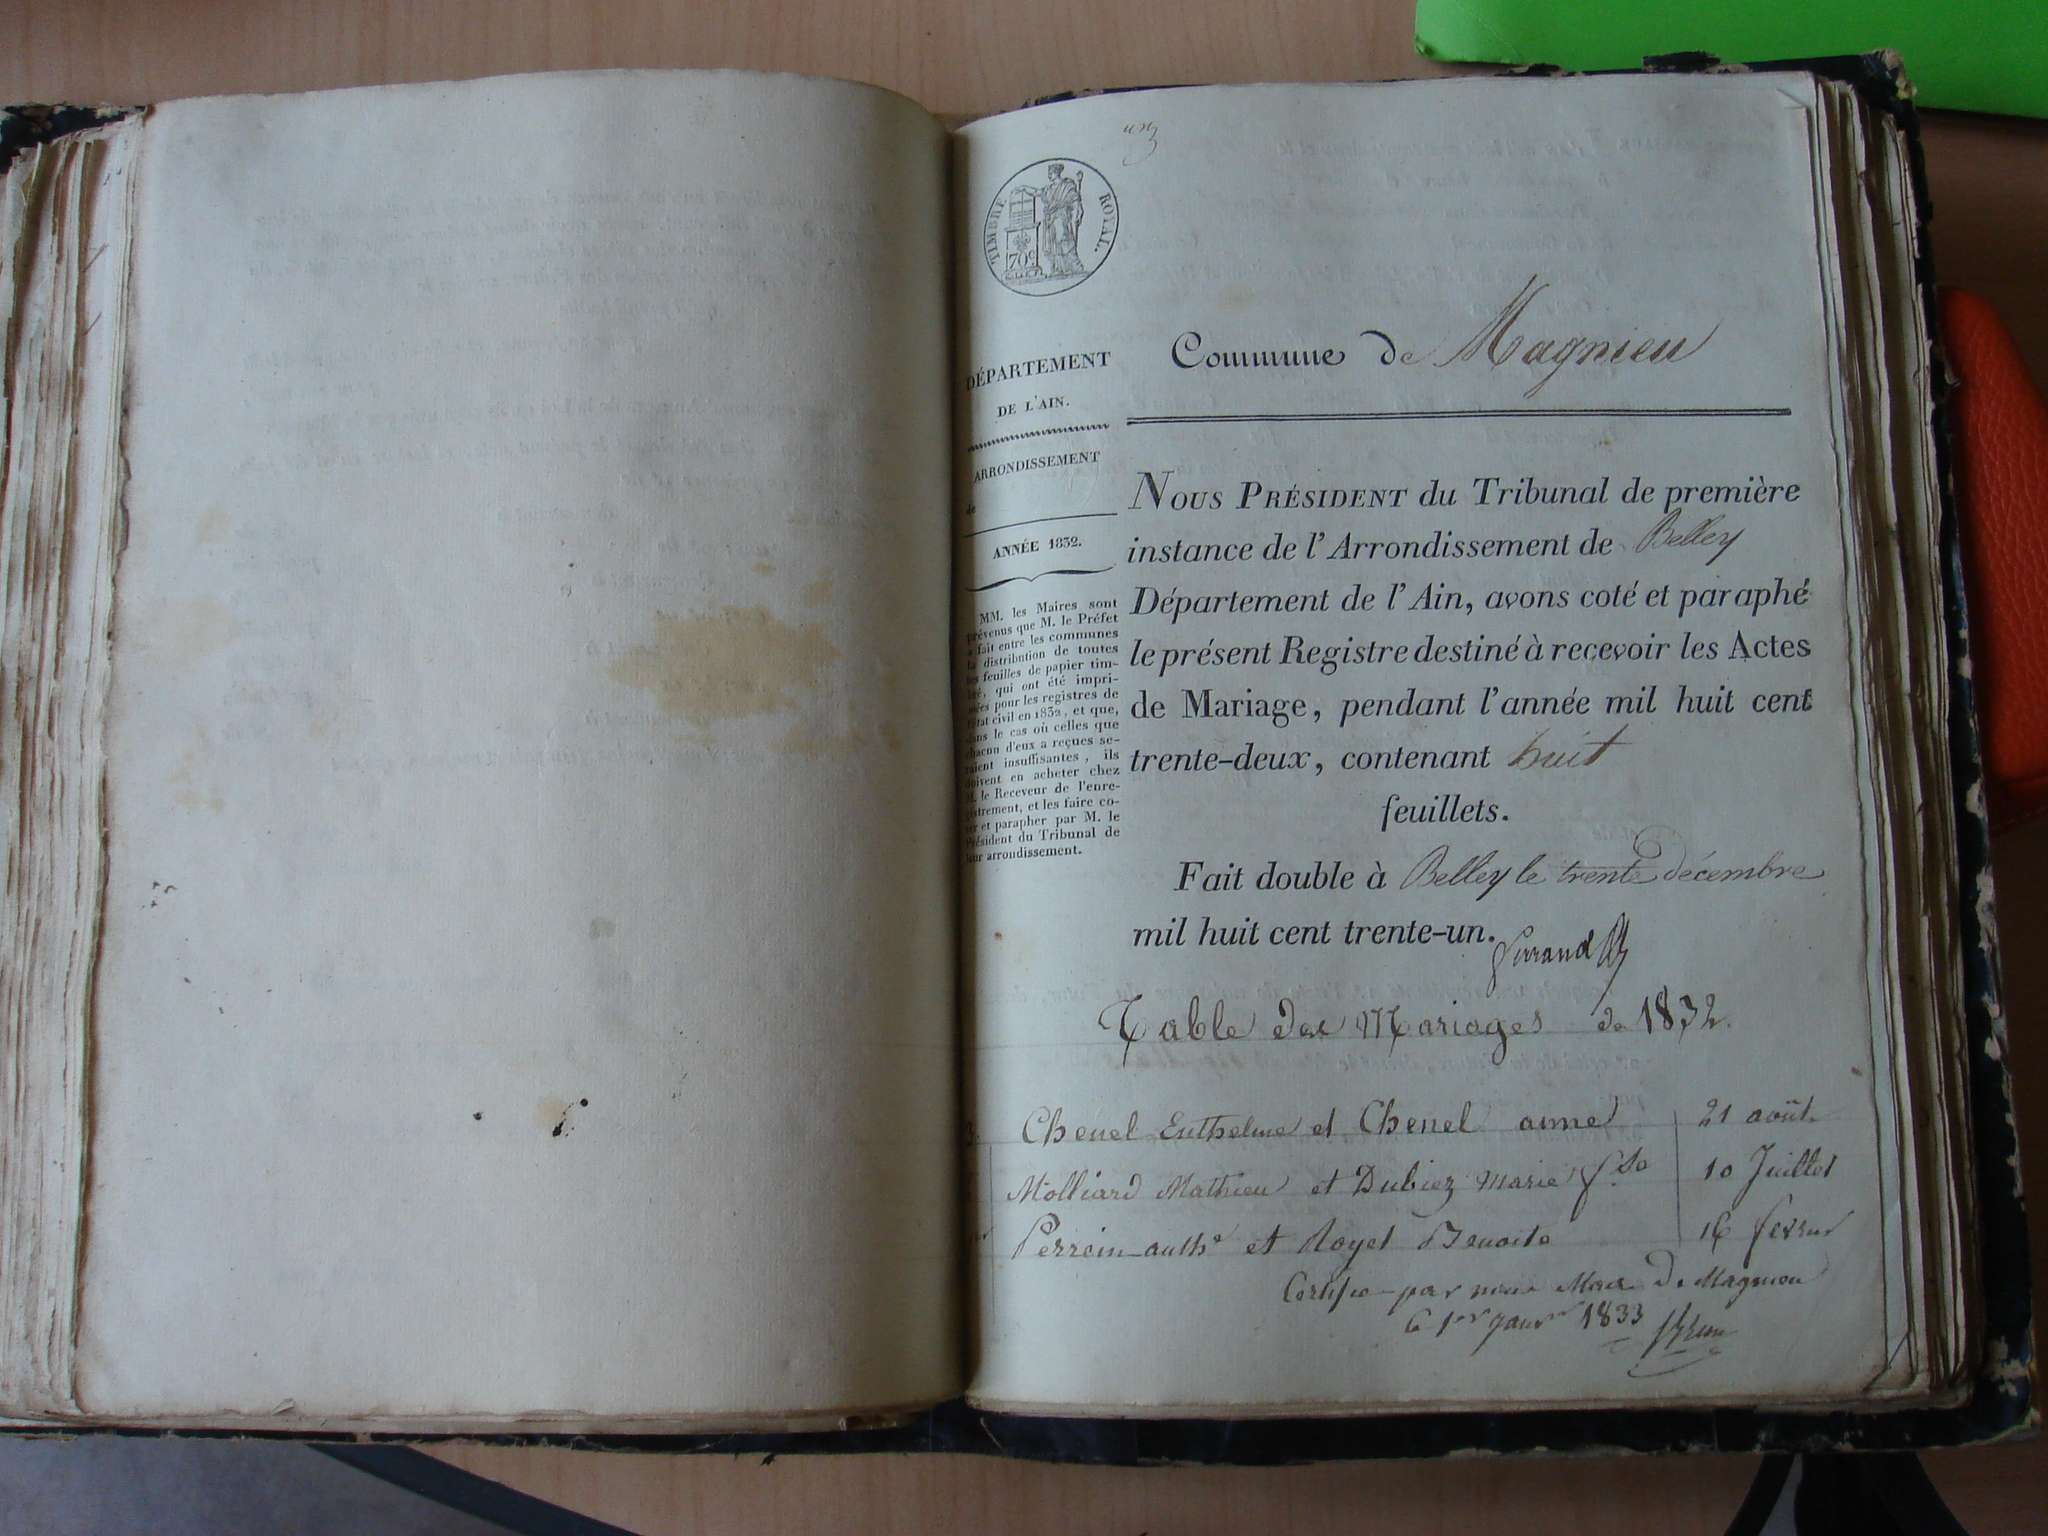 un
TIMBRE ROYAL.
70c
Commune de Magnieu
DÉPARTEMENT
DE L'AIN.
ARRONDISSEMENT
de
ANNÉE 1832.
MM. les Maires sont
prévenus que M. le Préfet
a fait entre les communes
la distribution de toutes
les feuilles de papier tim-
bré, qui ont été impri-
mées pour les registres de
l'état civil en 1832, et que,
dans le cas où celles que
chacun d'eux a reçues se-
raient insuffisantes, ils
doivent en acheter chez
M. le Receveur de l'enre-
gistrement, et les faire co-
ter et parapher par M. le
Président du Tribunal de
leur arrondissement.
NOUS PRÉSIDENT du Tribunal de première
instance de l'Arrondissement de Belley
Département de l'Ain, avons coté et paraphé
le présent Registre destiné à recevoir les Actes
de Mariage, pendant l'année mil huit cent
trente-deux, contenant huit
feuillets.
Fait double à Belley le trente décembre
mil huit cent trente-un.
Table des Mariages de 1832.
3. Chenel Enthelme et Chenel anne 21 août
Molliard Mathieu et Dubiez Marie 10 Juillet
Perrein anthe et Royet Benoite 16
Certifié par nous Maire De Magnieu
1er Janvr 1833